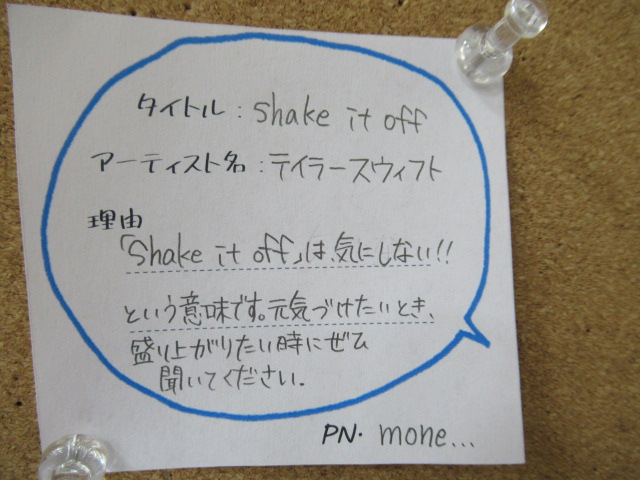 タイトル : shake it off
アーティスト名 : テイラースウィフト
理由
「Shake it off」は、気にしない!!
という意味です。元気づけたいとき、
盛り上がりたい時にぜひ
聞いてください.
PN. mone...